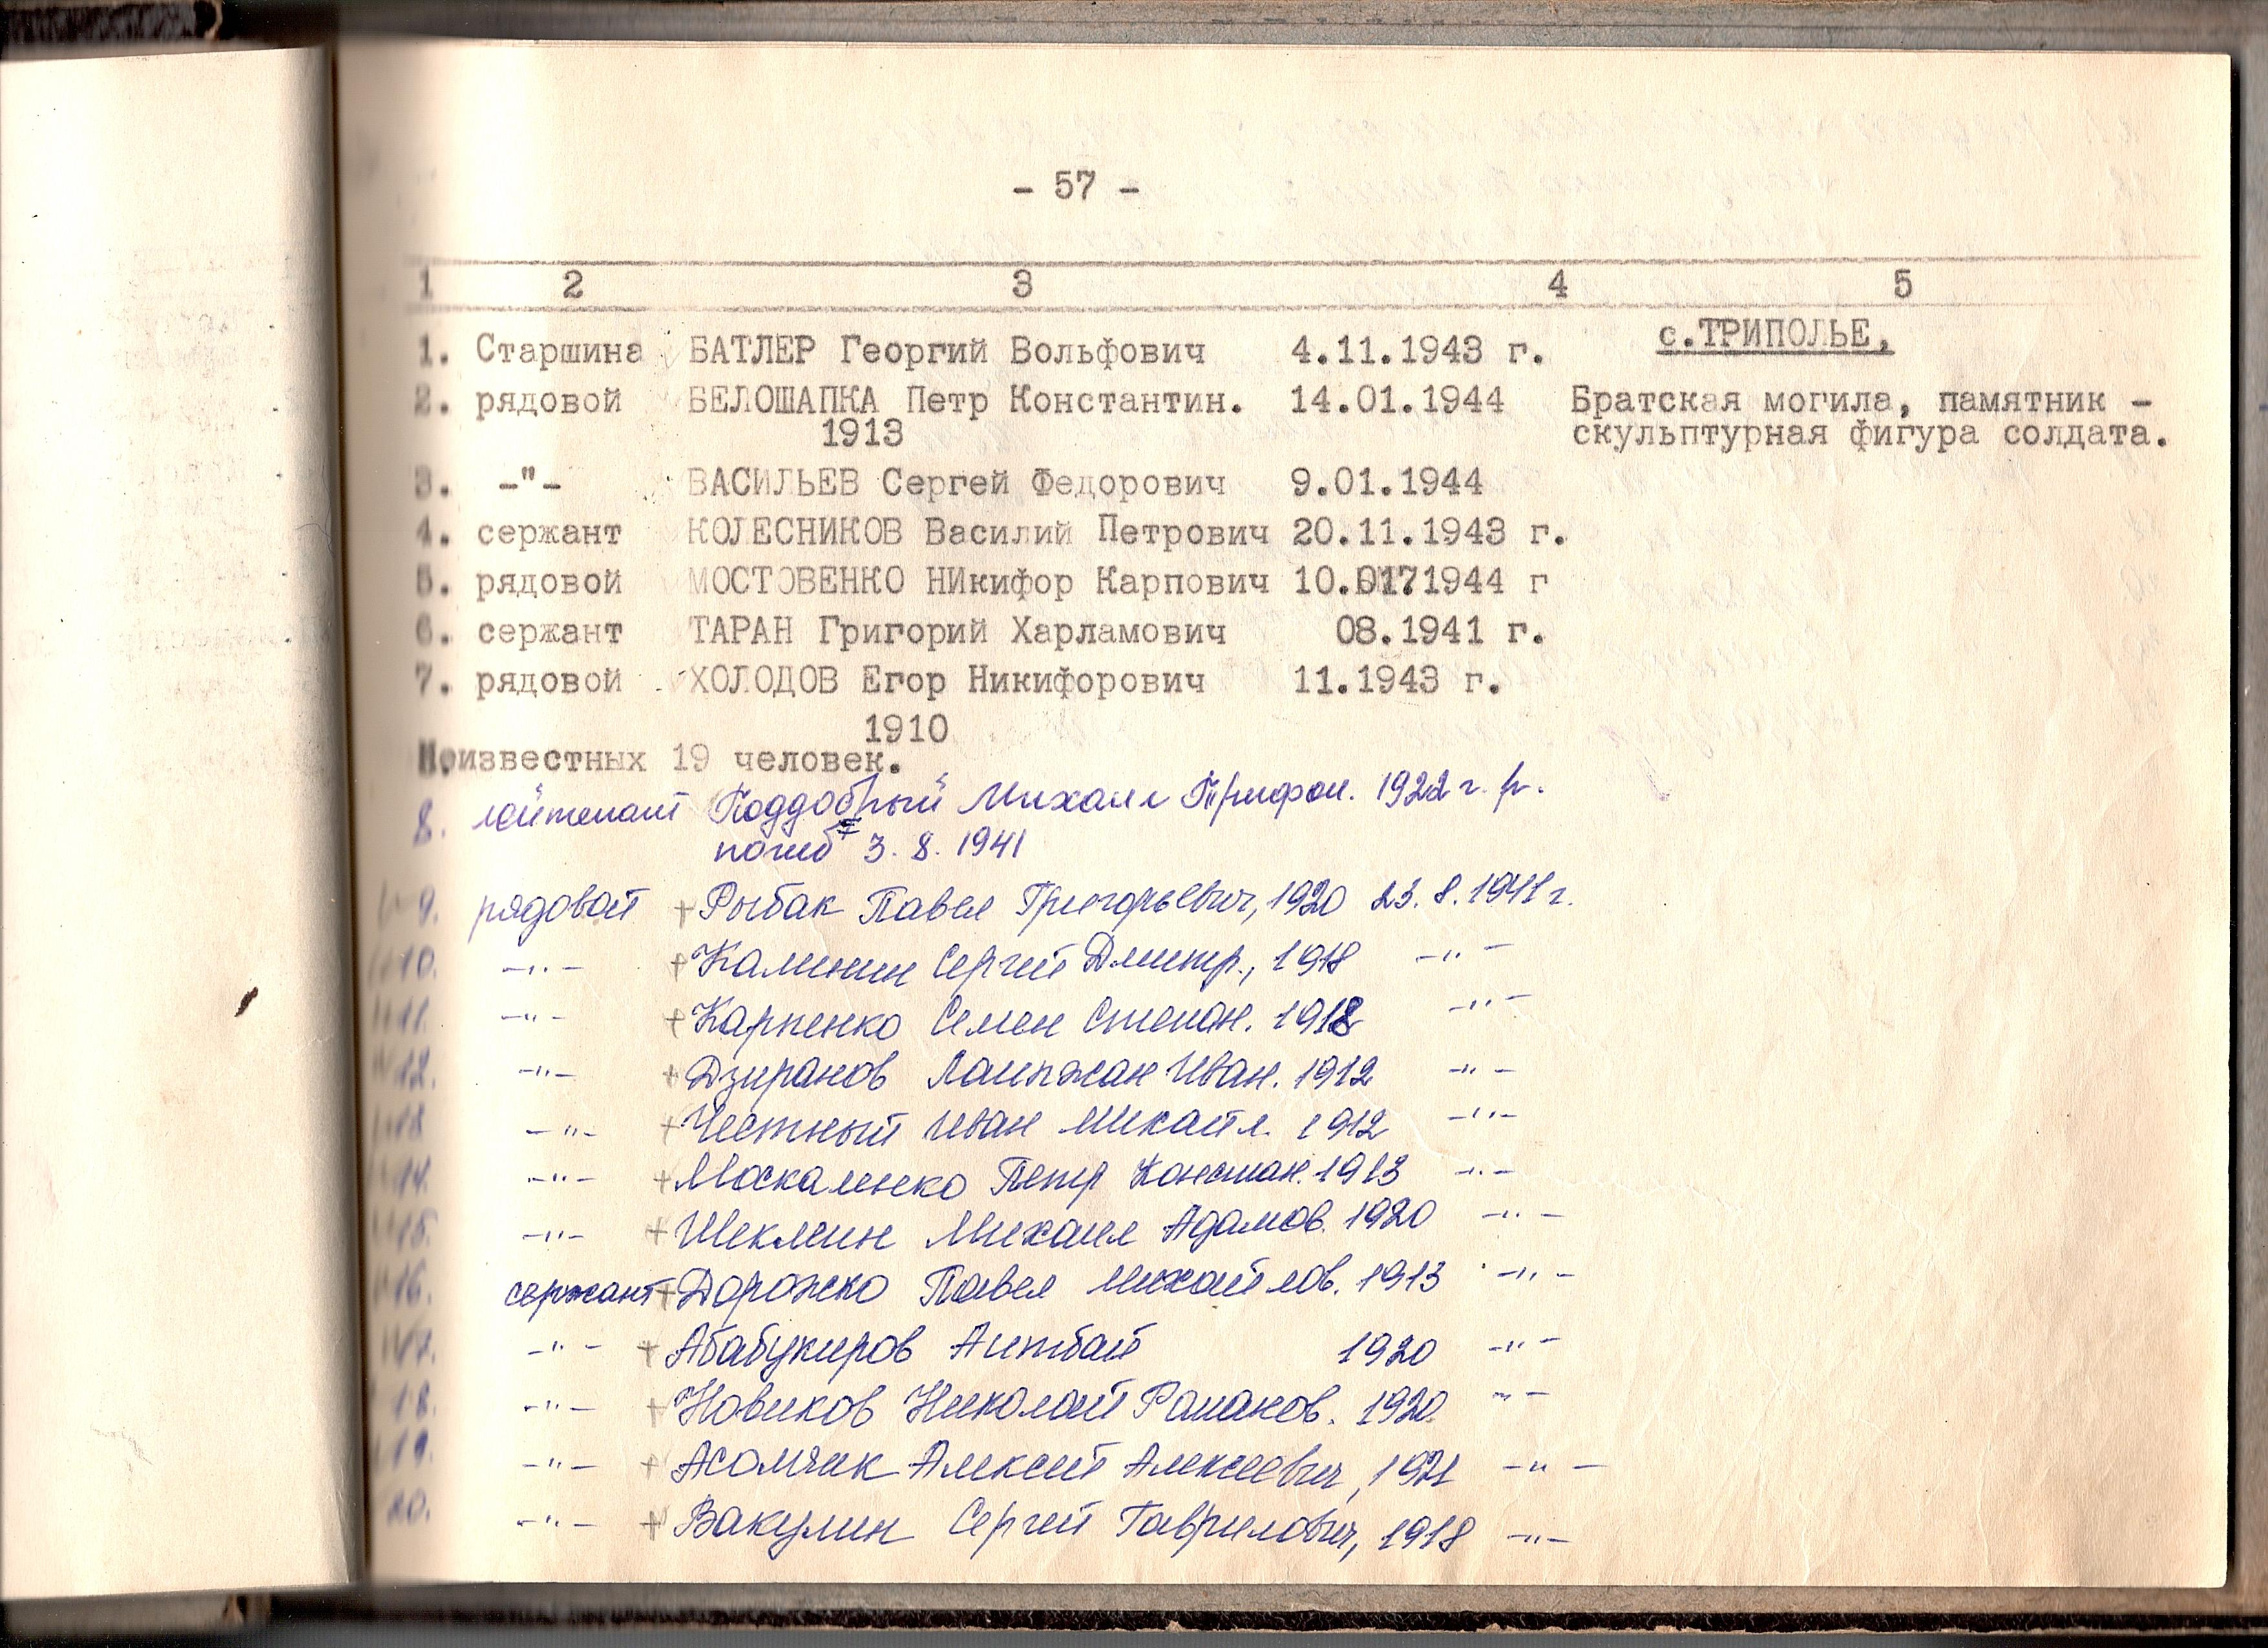 - 57 -
1 2 3 4 5
с.ТРИПОЛЬЕ,
1. Старшина БАТЛЕР Георгий Вольфович 4.11.1943 г.
2. рядовой БЕЛОШАПКА Петр Константин. 14.01.1944 Братская могила, памятник -
1913 скульптурная фигура солдата.
3. -"- ВАСИЛЬЕВ Сергей Федорович 9.01.1944
4. сержант КОЛЕСНИКОВ Василий Петрович 20.11.1943 г.
5. рядовой МОСТОВЕНКО НИкифор Карпович 10. 1944 г
6. сержант ТАРАН Григорий Харламович 08.1941 г.
7. рядовой ХОЛОДОВ Егор Никифорович 11.1943 г.
1910
Неизвестных 19 человек.
8. лейтенант Поддобрый Михаил Трифон. 1922 г. р.
погиб 3. 8. 1941
9. рядовой + Рыбак Павел Григорьевич, 1920 23. 8. 1941 г.
10. -"- + Калинин Сергей Дмитр., 1918 -"-
11. -"- + Карпенко Семен Степан. 1918 -"-
12. -"- + Дзиранов Иван. 1912 -"-
13 -"- + Честный Иван Михайл. 1912 -"-
14. -"- + Москаленко Петр Констан. 1913 -"-
15. -"- + Шеклеин Михаил Адамов. 1920 -"-
16. сержант + Дорожко Павел Михайлов. 1913 -"-
17. -"- + Абабукиров Аитбай 1920 -"-
18. -"- + Новиков Николай Романов. 1920 -"-
19. -"- + Алексей Алексеевич, 1921 -"-
20. -"- + Вакулин Сергей Гаврилович, 1918 -"-